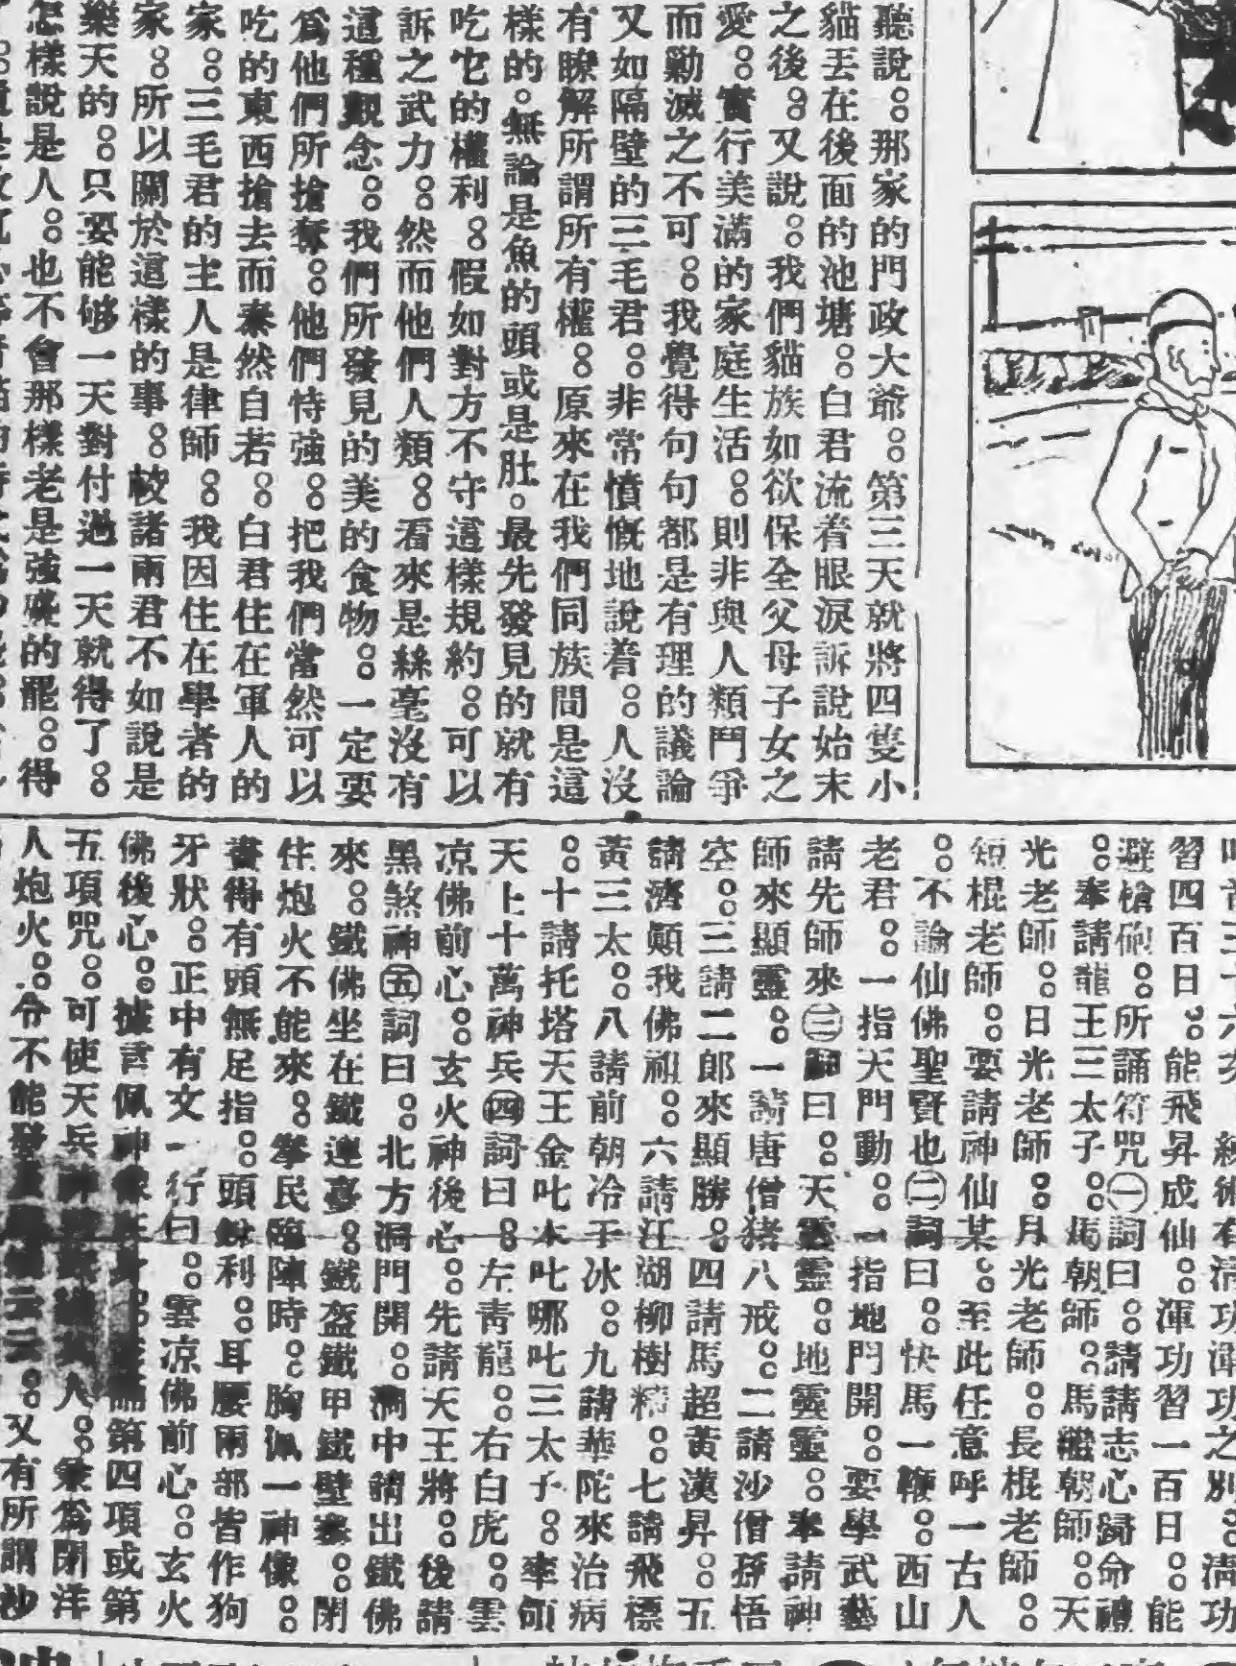 聽說。那家的門政大爺。第三天就將四隻小
貓丟在後面的池塘。白君流着眼淚訴說始末
之後。又說。我們貓族如欲保全父母子女之
愛。實行美滿的家庭生活。則非與人類鬥爭
而勦滅之不可。我覺得句句都是有理的議論
又如隔壁的三毛君。非常憤慨地說着。人沒
有瞭解所謂所有權。原來在我們同族間是這
樣的。無論是魚的頭或是肚。最先發見的就有
吃它的權利。假如對方不守這樣規約。可以
訴之武力。然而他們人類。看來是絲毫沒有
這種觀念。我們所發見的美的食物。一定要
爲他們所搶奪。他們恃強。把我們當然可以
吃的東西搶去而泰然自若。白君住在軍人的
家。三毛君的主人是律師。我因住在學者的
家。所以關於這樣的事。較諸兩君不如說是
樂天的。只要能够一天對付過一天就得了。
怎樣說是人。也不會那樣老是強盛的罷。得
習四百日。能飛昇成仙。渾功習一百日。能
避槍砲。所誦符咒㊀詞曰。請請志心歸命禮
。奉請龍王三太子。馬朝師。馬繼朝師。天
光老師。日光老師。月光老師。長棍老師。
短棍老師。要請神仙某。至此任意呼一古人
。不論仙佛聖賢也㊁詞曰。快馬一鞭。西山
老君。一指天門動。一指地門開。要學武藝
請先師來㊂詞曰。天靈靈。地靈靈。奉請神
師來顯靈。一請唐僧猪八戒。二請沙僧孫悟
空。三請二郎來顯勝。四請馬超黃漢昇。五
請濟顛我佛祖。六請江湖柳樹精。七請飛標
黃三太。八請前朝冷于冰。九請華陀來治病
。十請托塔天王金吒木吒哪吒三太子。率領
天上十萬神兵㊃詞曰。左青龍。右白虎。雲
凉佛前心。玄火神後心。先請天王將。後請
黑煞神㊄詞曰。北方洞門開。洞中請出鐵佛
來。鐵佛坐在鐵蓮臺。鐵盔鐵甲鐵壁寨。閉
住炮火不能來。拳民臨陣時。胸佩一神像。
書得有頭無足指。頭銳利。耳腰兩部皆作狗
牙狀。正中有文一行曰。雲凉佛前心。玄火
佛後心。據言佩神像 第四項或第
五項咒。可使天兵 人。兼爲閉洋
人炮火。令不能發 。又有所謂沙